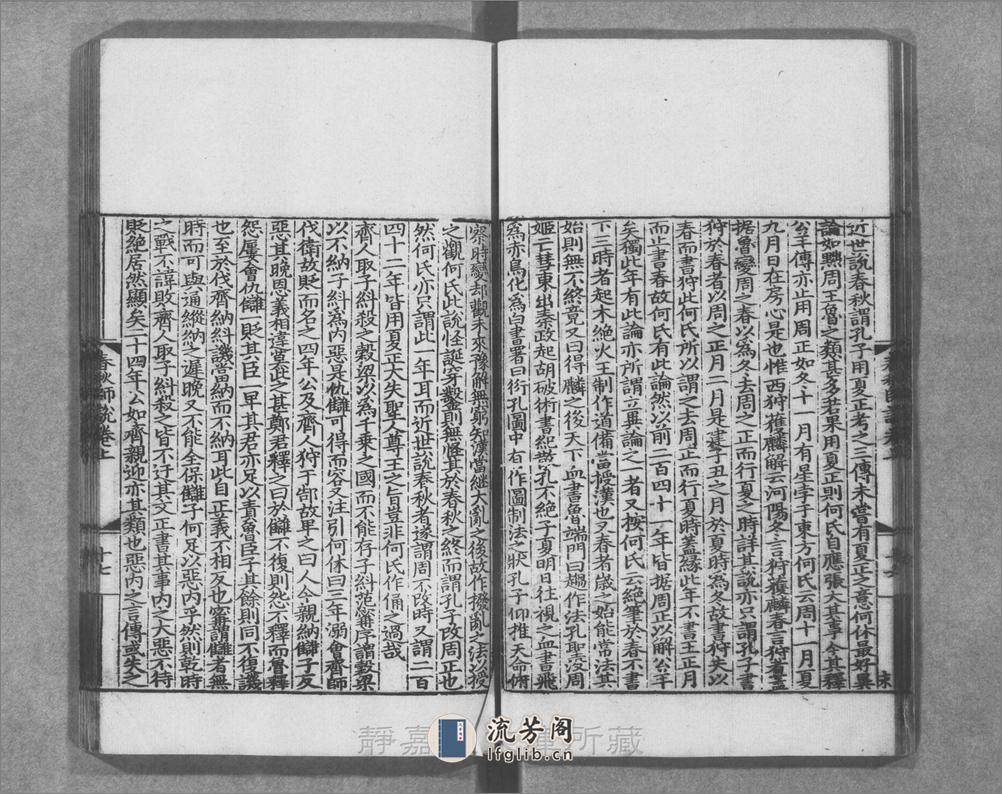 近世說春秋謂孔子用夏正考之三傳未嘗有夏正之意何休最好異
論如黜周王魯之類甚多若果用夏正則何氏自應張大其事今其釋
公羊傳亦止用周正如冬十一月有星孛于東方何氏云周十一月夏
九月日在房心是也惟西狩獲麟解云河陽冬言狩獲麟春言狩者蓋
据魯變周之春以為冬去周之正而行夏之時詳其說亦只謂孔子書
狩於春者以周之正月二月是建子丑之月於夏時為冬故書狩失以
春而書狩此何氏所以謂之去周正而行夏時蓋緣此年不書王正月
而止書春故何氏有此論然以前二百四十一年皆据周正以解公羊
矣獨此年有此論亦所謂立異論之一者又按何氏云絶筆於春不書
下三時者起木絶火王制作道備當授漢也又春者歲之始能常法其
始則無不終竟又曰得麟之後天下血書魯端門曰趨作法孔聖沒周
姬亡彗東出秦政起胡破術書紀散孔不絶子夏明日往視之血書飛
為赤烏化為白書署曰衍孔圖中有作圖制法之狀孔子仰推天命俯
察時變却觀未來豫解無窮知漢當繼大亂之後故作撥亂之法以授
之觀何氏此說怪誕穿鑿則無怪其於春秋之終而謂孔子改周正也
然何氏亦只謂此一年耳而近世說春秋者遂謂周不改時又謂二百
四十二年皆用夏正大失聖人尊王之旨豈非何氏作俑之過哉
齊人取子糾殺之穀梁以為千乘之國而不能存子糾范甯序謂穀梁
以不納子糾為内惡是仇讎可得而容又注引何休曰三年溺會齊師
伐衛故貶而名之四年公及齊人狩于郜故卑之曰人今親納讎子反
惡其晚恩義相違莫此之甚鄭君釋之曰於讎不復則怨不釋而魯釋
怨屢會仇讎一貶其臣一卑其君亦足以責魯臣子其餘則同不復譏
也至於伐齊納糾譏當納而不納耳此自正義不相反也甯謂讎者無
時而可與通縱納之遲晚又不能全保讎子何足以惡内乎然則乾時
之戰不諱敗齊人取子糾殺之皆不迂其文正書其事内之大惡不待
貶絶居然顯矣二十四年公如齊親迎亦其類也惡内之言傳或失之
春秋師說卷上
十七